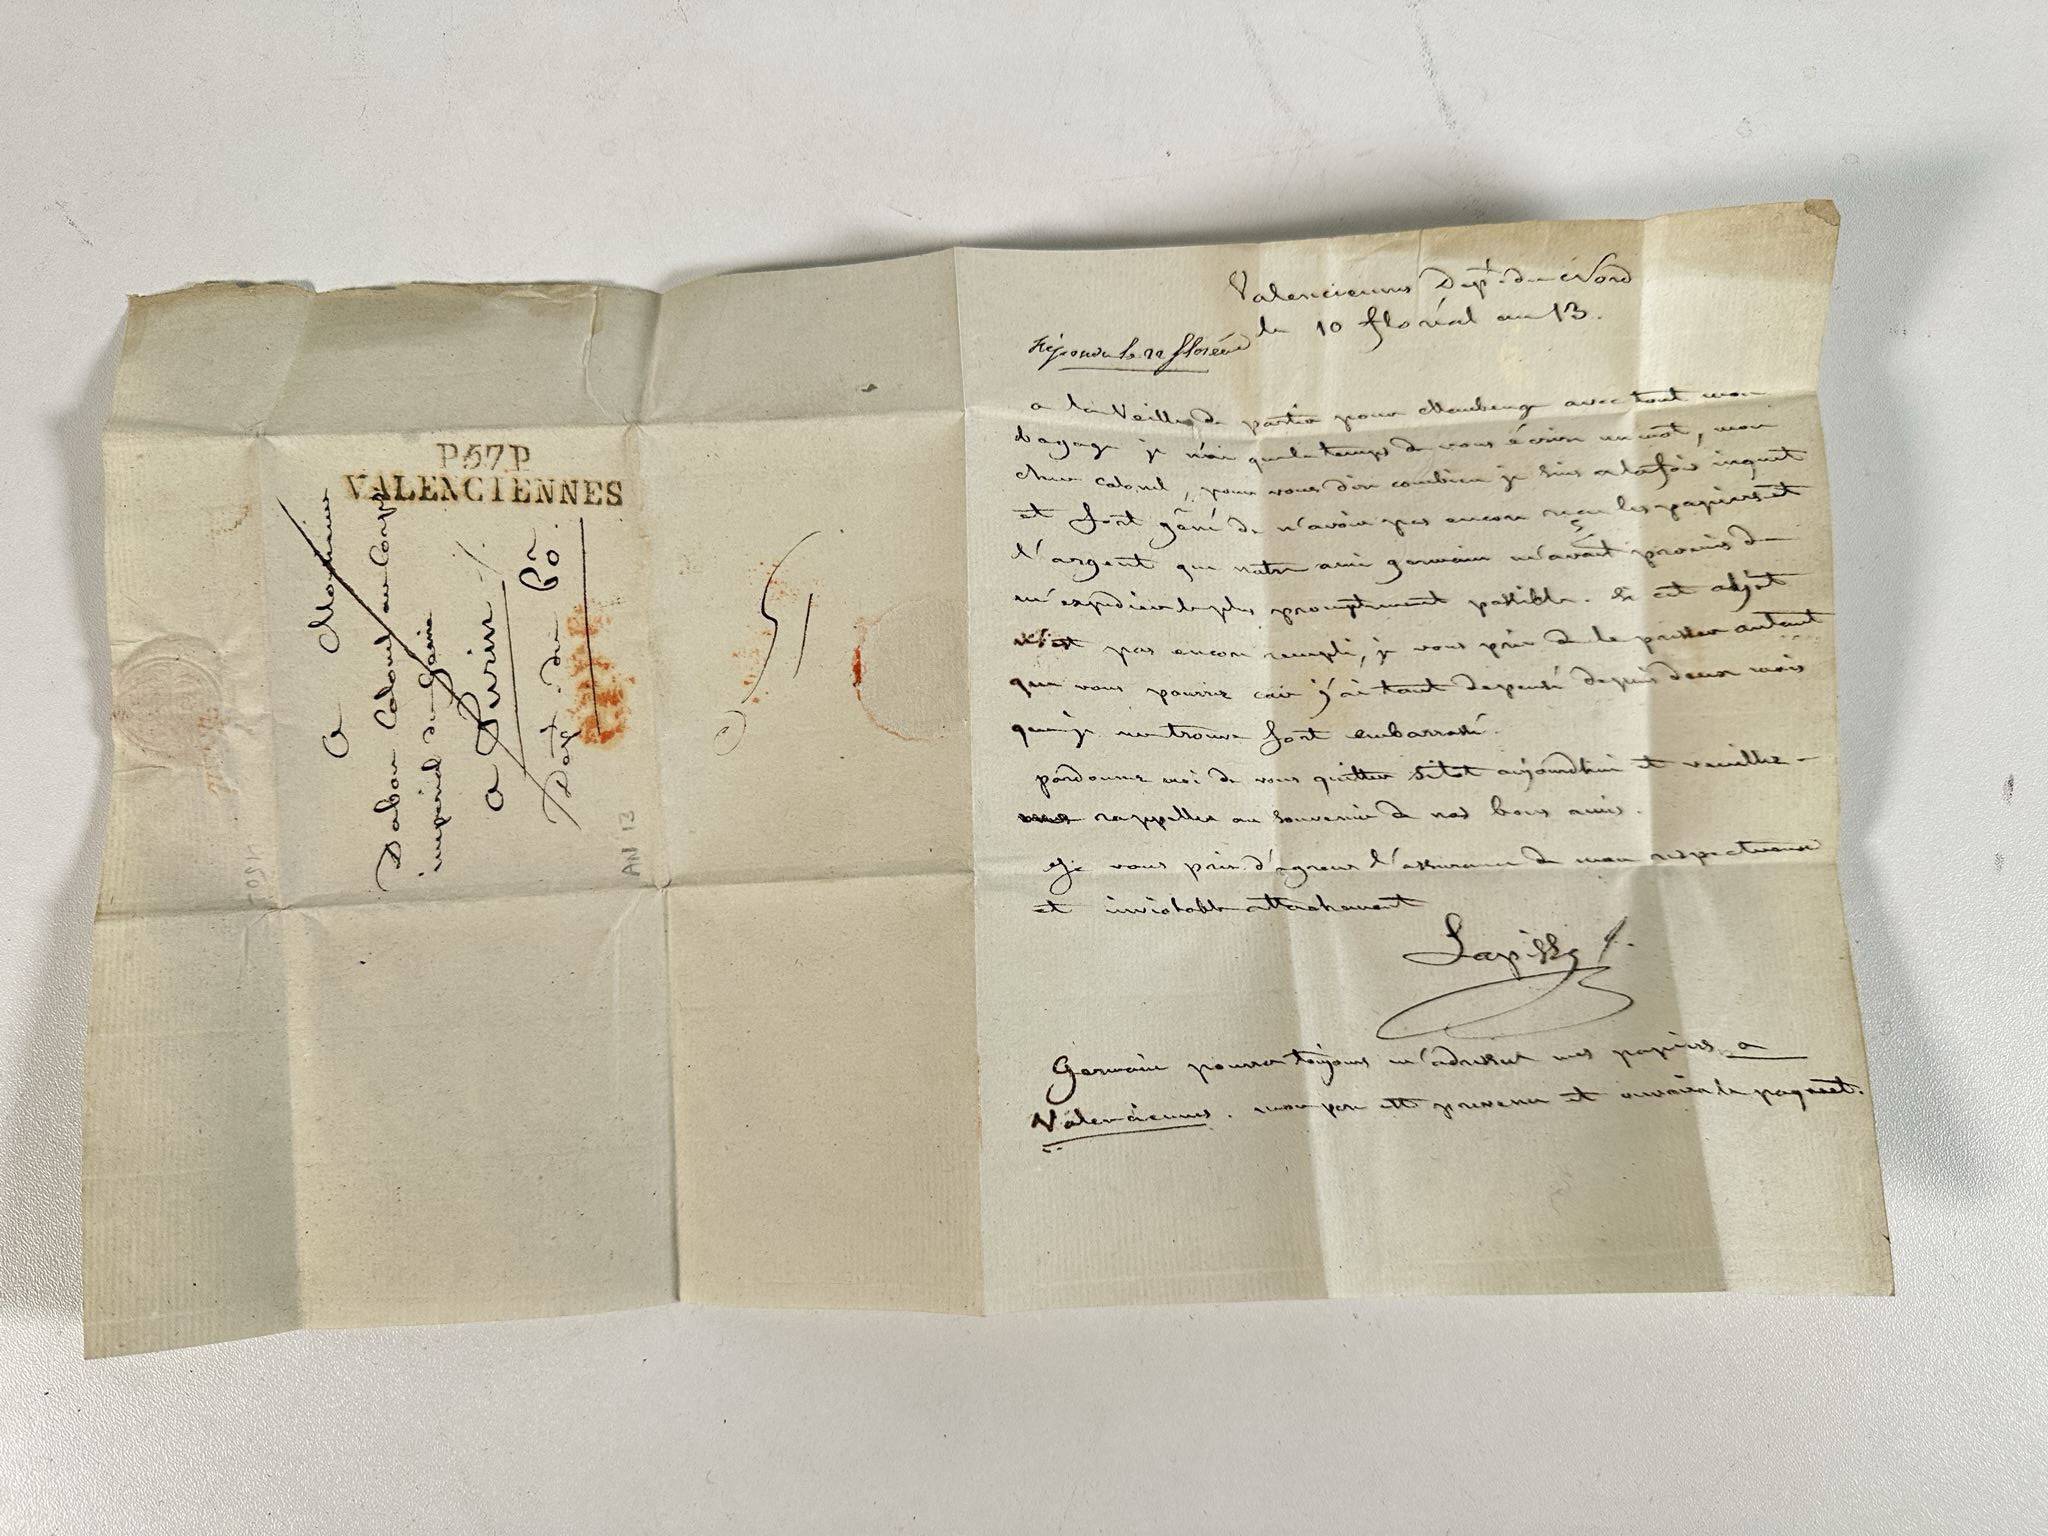 P57P
VALENCIENNES
A Monsieur
Dabon Colonel au Corps
imperial du Génie
a Turin
Dept. du Pô.
AN 13
Valenciennes Dept. du Nord
le 10 floréal an 13.
Répondu le floréal
a la Veille de partir pour Maubeuge avec tout mon
bagage je n'ai que le temps de vous écrire un mot, mon
cher Colonel, pour vous dire combien je suis a la fois inquiet
et fort gêné de n'avoir pas encore reçu les papiers et
l'argent que notre ami germain m'avait promis de
m'expedier le plus promptement possible. Si cet objet
n'est pas encore rempli, je vous prie de le presser autant
que vous pourrez car j'ai tant depensé depuis deux mois
que je me trouve fort embarrassé.
pardonnez moi de vous quitter sitot aujourdhui et veuillez -
me rappeller au souvenir de nos bons amis.
Je vous prie d'agreer l'assurance de mon respectueux
et inviolable attachement
Germain pourra toujours m'adresser mes papiers a
Valenciennes. mon pere est prevenu et ouvrira le paquet.